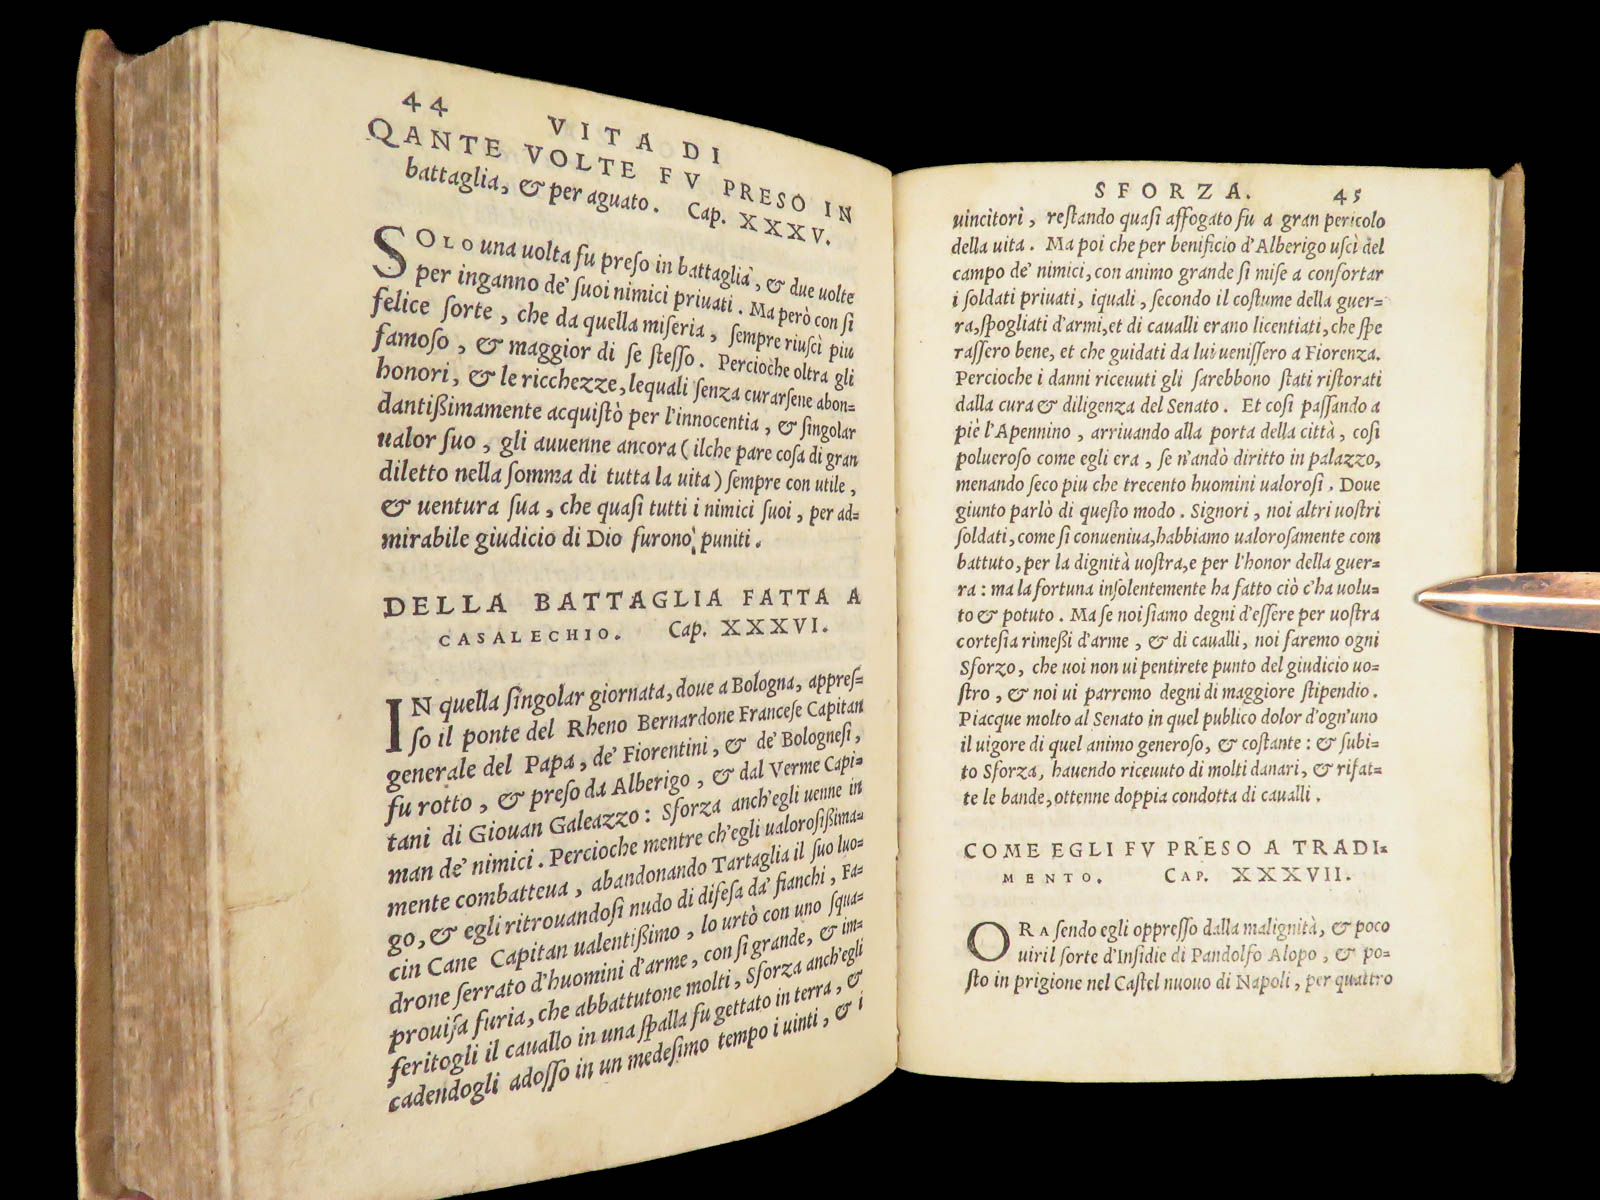 44
VITA DI
QANTE VOLTE FV PRESO IN
battaglia, & per aguato. Cap. XXXV.
SOLO una uolta fu preſo in battaglia, & due uolte
per inganno de' ſuoi nimici priuati. Ma però con ſi
felice ſorte, che da quella miſeria, ſempre riuſcì piu
famoſo, & maggior di ſe ſteſſo. Percioche oltra gli
honori, & le ricchezze, lequali ſenza curarſene abon=
dantißimamente acquiſtò per l'innocentia, & ſingolar
ualor ſuo, gli auuenne ancora (ilche pare coſa di gran
diletto nella ſomma di tutta la uita) ſempre con utile,
& uentura ſua, che quaſi tutti i nimici ſuoi, per ad=
mirabile giudicio di Dio furono puniti.
DELLA BATTAGLIA FATTA A
CASALECHIO. Cap. XXXVI.
IN quella ſingolar giornata, doue a Bologna, appreſ=
ſo il ponte del Rheno Bernardone Franceſe Capitan
generale del Papa, de' Fiorentini, & de' Bologneſi,
fu rotto, & preſo da Alberigo, & dal Verme Capi=
tani di Giouan Galeazzo: Sforza anch'egli uenne in
man de' nimici. Percioche mentre ch'egli ualoroſißima=
mente combatteua, abandonando Tartaglia il ſuo luo=
go, & egli ritrouandoſi nudo di difeſa da' fianchi, Fa=
cin Cane Capitan ualentißimo, lo urtò con uno ſqua=
drone ſerrato d'huomini d'arme, con ſi grande, & im=
prouiſa furia, che abbattutone molti, Sforza anch'egli
feritogli il cauallo in una ſpalla fu gettato in terra, &
cadendogli adoſſo in un medeſimo tempo i uinti, & i
SFORZA. 45
uincitori, reſtando quaſi affogato fu a gran pericolo
della uita. Ma poi che per benificio d'Alberigo uſcì del
campo de' nimici, con animo grande ſi miſe a confortar
i ſoldati priuati, iquali, ſecondo il coſtume della guer=
ra, ſpogliati d'armi, et di caualli erano licentiati, che ſpe
raſſero bene, et che guidati da lui ueniſſero a Fiorenza.
Percioche i danni riceuuti gli ſarebbono ſtati riſtorati
dalla cura & diligenza del Senato. Et coſi paſſando a
piè l'Apennino, arriuando alla porta della città, coſi
polueroſo come egli era, ſe n'andò diritto in palazzo,
menando ſeco piu che trecento huomini ualoroſi. Doue
giunto parlò di queſto modo. Signori, noi altri uoſtri
ſoldati, come ſi conueniua, habbiamo ualoroſamente com
battuto, per la dignità uoſtra, e per l'honor della guer=
ra: ma la fortuna inſolentemente ha fatto ciò c'ha uolu=
to & potuto. Ma ſe noi ſiamo degni d'eſſere per uoſtra
corteſia rimeßi d'arme, & di caualli, noi faremo ogni
Sforzo, che uoi non ui pentirete punto del giudicio uo=
ſtro, & noi ui parremo degni di maggiore ſtipendio.
Piacque molto al Senato in quel publico dolor d'ogn'uno
il uigore di quel animo generoſo, & coſtante: & ſubi=
to Sforza, hauendo riceuuto di molti danari, & rifat=
te le bande, ottenne doppia condotta di caualli.
COME EGLI FV PRESO A TRADI=
MENTO. CAP. XXXVII.
ORA ſendo egli oppreſſo dalla malignità, & poco
uiril ſorte d'Inſidie di Pandolfo Alopo, & po=
ſto in prigione nel Caſtel nuouo di Napoli, per quattro